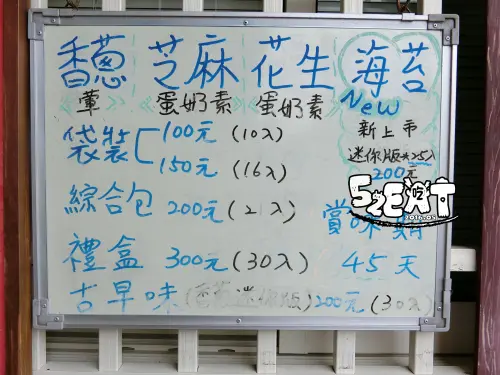 香蔥 芝麻 花生 海苔
《葷》 《蛋奶素》 《蛋奶素》 New
新上市
袋裝 100元 (10入)
150元 (16入)
迷你版*25入
200元
綜合包 200元 (21入)
賞味期
45天
禮盒 300元 (30入)
古早味 (香蔥迷你版) 200元 (30入)
52EAT